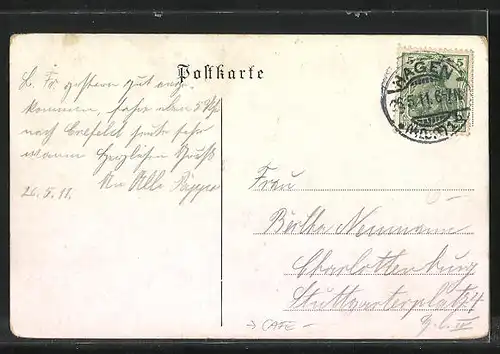 Postkarte
L. Fr. gestern gut ange-
kommen, fahre eben 5 Uhr
nach Crefeld heute sehr
warm Herzlichen Gruß
An Alle
26.5.11.
HAGEN
26.5.11.6-7
(W)
5
5
Frau
Bertha Neumann
Charlottenburg
Stuttgarterplatz 4
→ CAFE -